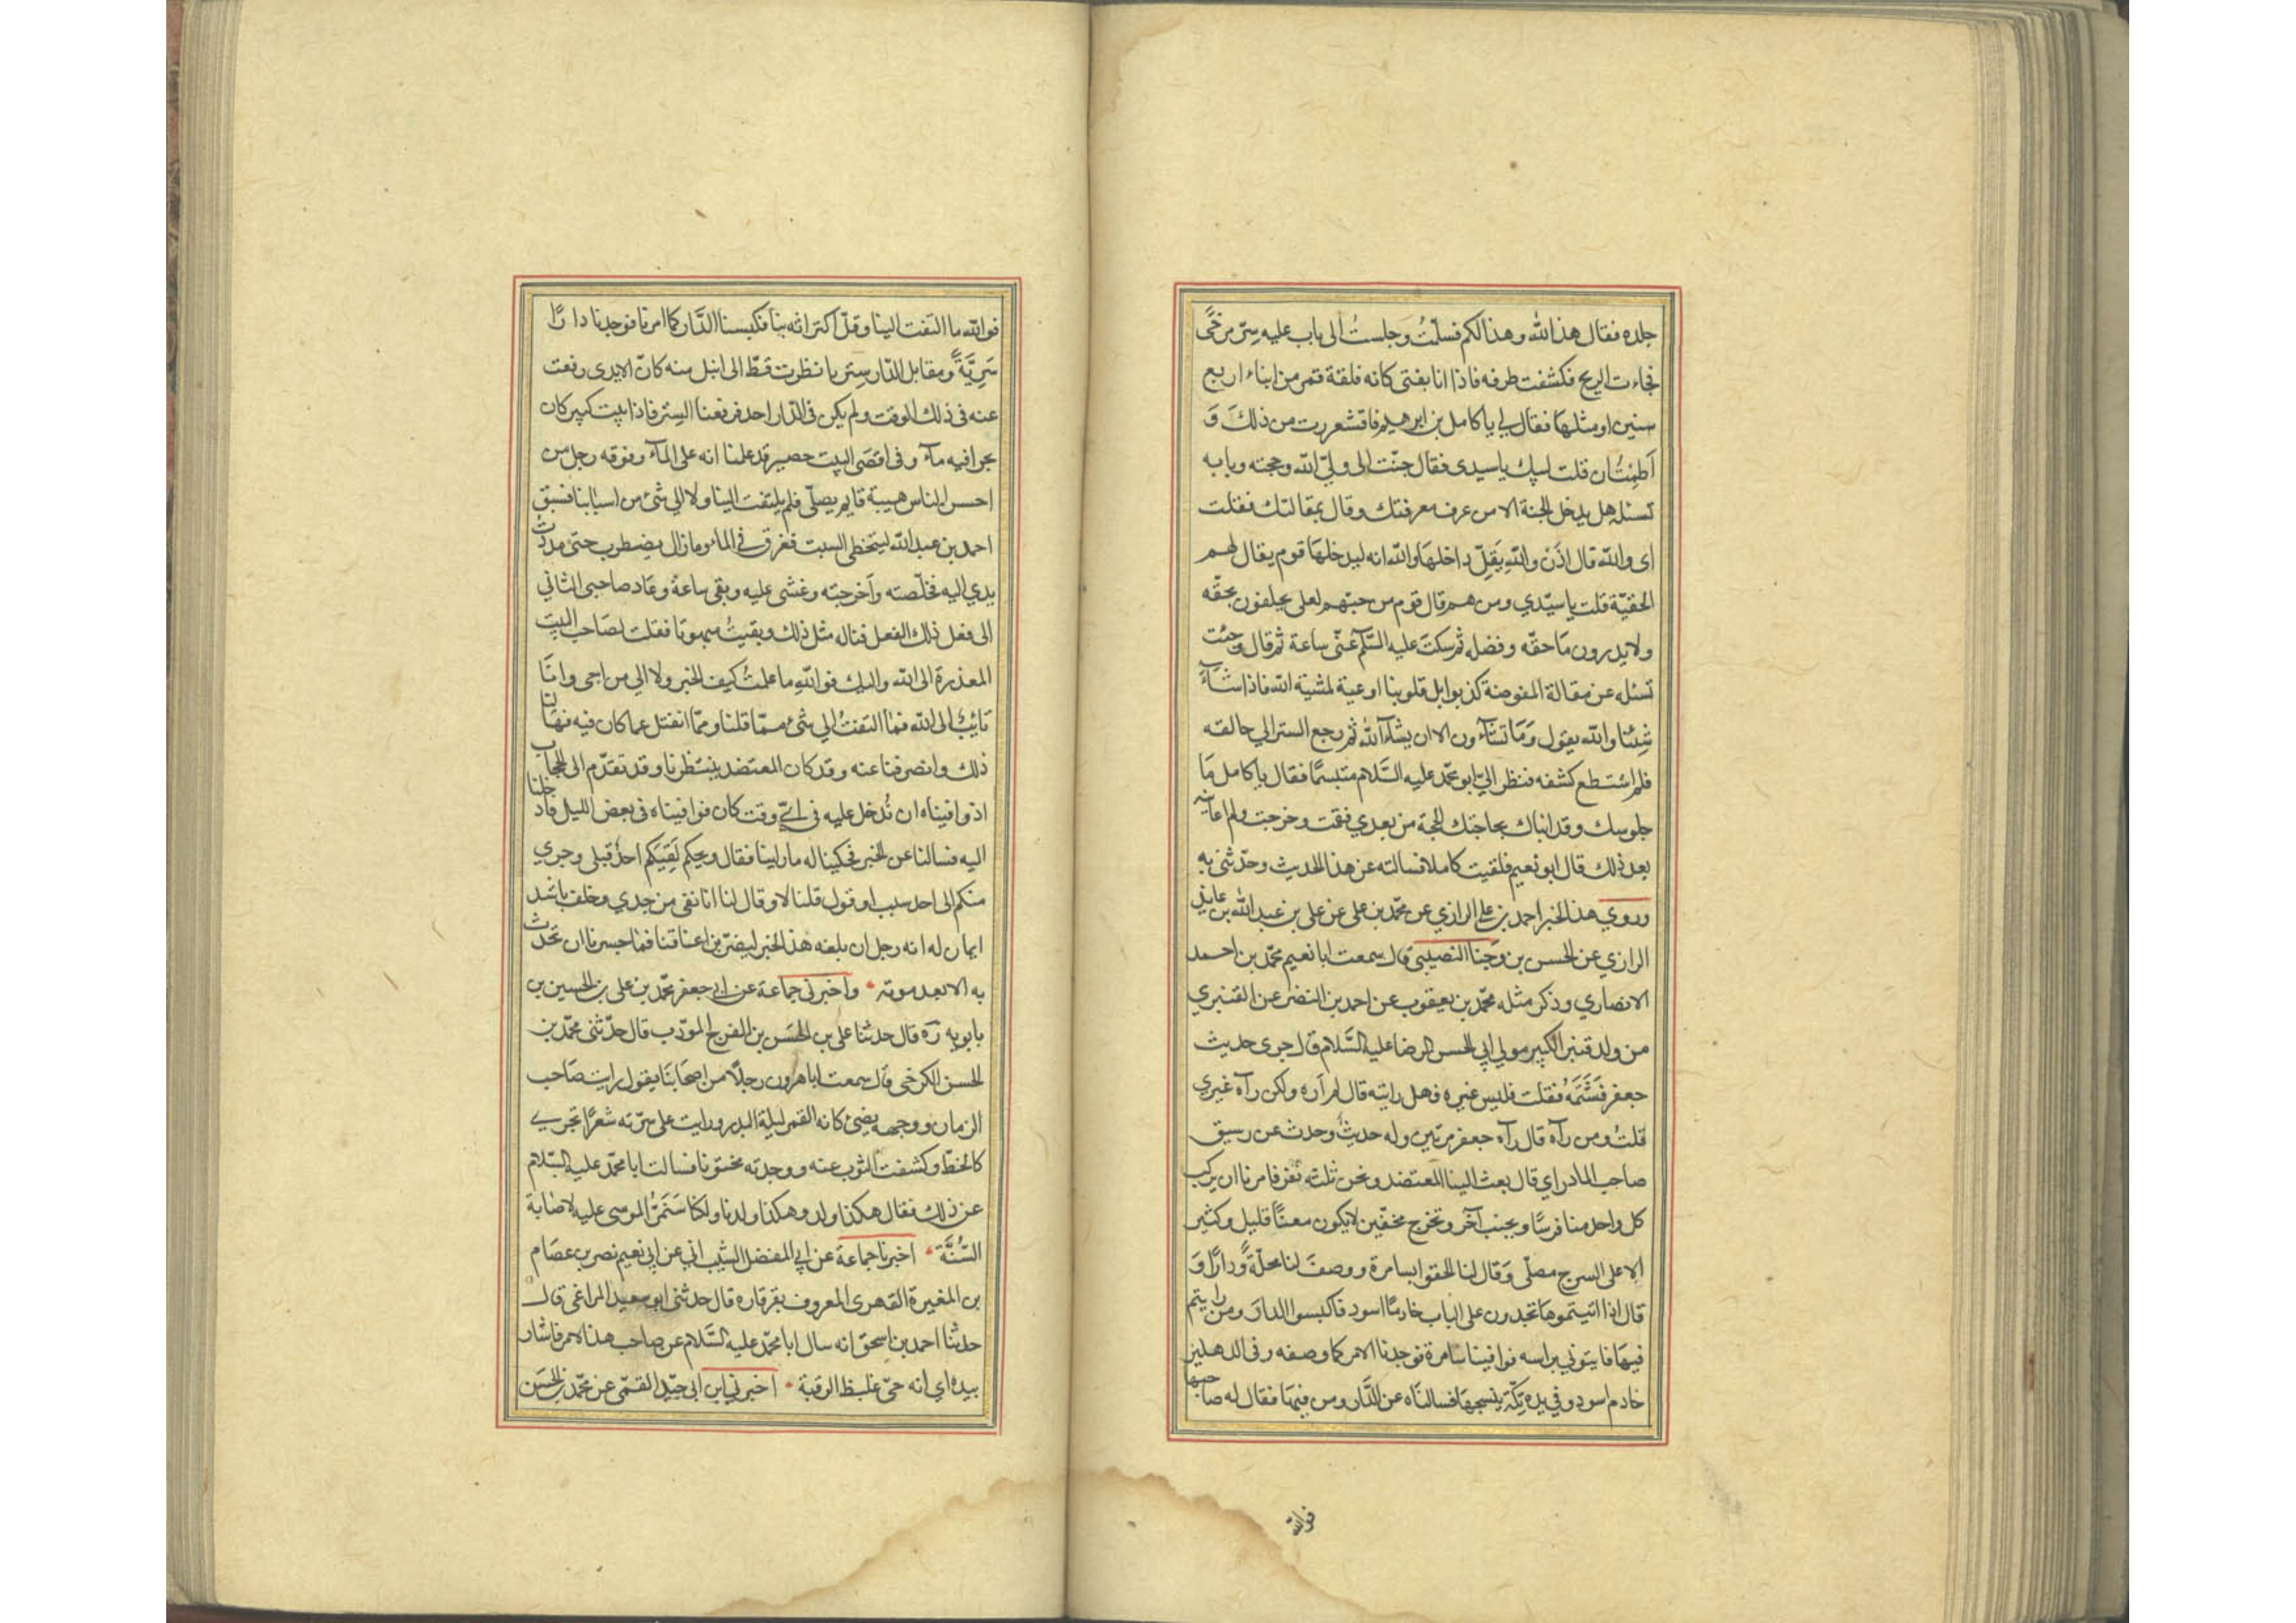 جلده فقال هذا لله وهذا لكم فسلّمتُ وجلستُ الى باب عليه ستر مرخًى
فجاءت الريح فكشفت طرفه فاذا انا بفتى كانه فلقة قمر من ابناء اربع
سنين او مثلها فقال لي يا كامل بن ابرهيم فاقشعررت من ذلك وَ
اُطِمْتُ ان قلت لبيك يا سيدى فقال جئت الى وليّ الله وحجته وبابه
تسئله هل يدخل الجنة الا من عرف معرفتك وقال بمقالتك فقلت
اى والله قال اذَن والله يَقِلّ داخلها والله انه ليدخلها قوم يقال لهم
الحقيّة قلت يا سيّدي ومن هم قال قوم من حبّهم لعلى يحلفون بحقّه
ولا يدرون مَا حقّه وفضله ثم سكتَ عليه السّلم عنّى ساعة ثم قال وجئت
تسئله عن مقالة المفوضة كذبوا بل قلوبنا اوعية لمشية الله فاذا شَآءَ
شِئنا والله يقول وَمَا تشآؤن الا ان يشآء الله ثم رجع الستر الي حالته
فلم استطع كشفه فنظر اليّ ابو محمّد عليه السَّلام متبسمًا فقال يا كامل مَا
جلوسك وقد انباك بحاجتك الحجة من بعدي فقمت وخرجت ولم اعاينه
بعد ذلك قال ابو نعيم فلقيت كاملا فسالته عن هذا الحديث وحدّثنى به
وروي هذا الخبر احمد بن علي الرازي عن محمّد بن على عن على بن عبد الله بن عايذ
الرازي عن الحسن بن وَجنا النصيبى قال سمعت ابا نعيم محمّد بن احمد
الانصاري وذكر مثله محمّد بن يعقوب عن احمد بن النضر عن القنبري
من ولد قنبر الكبير مولي ابي الحسن الرضا عليه السَّلام قال جرى حديث
جعفر فَشَتَمَهُ فقلت فليس غيره فهل رايته قال لم اَره ولكن رآه غيري
قلتُ ومن رآه قال رآه جعفر مرتين وله حديثٌ وحدث عن رسيق
صاحب المادراي قال بعث الينا المعتضد ونحن ثلثة نفر فامرنا ان يركب
كل واحد منا فرسًا ويجنب آخر ونخرج مخفّين لا يكون معنا قليل وكثير
الا على السرج مصلّى وَقال لنا الحقوا بسامرة ووصفَ لنا محلّةً ودارًا وَ
قال اذا اتيتموها تجدون على الباب خادمًا اسود فاكبسوا الدارَ ومن رايتم
فيها فايتوني براسه فوافينا سامرة فوجدنا الامر كما وصفه وفى الدهليز
خادم اسود وفي يده تِكّة ينسجها فسالنَاه عن الدَّار ومن فيها فقال له صاحبها
فوالله
فوالله ما التفت الينا وقلّ اكتراثه بنا فكبسنا الدَّار كما امرنا فوجدنا دارًا
سَرِيَّةً ومقابل الدّار سِتر ما نظرت قطّ الى انبل منه كانّ الايدى رفعت
عنه فى ذلك الوقت ولم يكن فى الدّار احد فرفعنا السِتر فاذا بيت كبير كان
بحرا فيه مآء وفى اقصَى البيت حصير قد علمنا انه على المآء وفوقه رجل من
احسن الناس هيبة قايم يصلّى فلم يلتفت الينا ولا الي شئ من اسبابنا فسبق
احمد بن عبد الله ليتخطى البيت فغرق فى الماء وما زال يضطرب حتى مددتُ
يدي اليه فخلّصته وَاَخرجته وغشى عليه وبقى ساعة وعَاد صاحبى الثاني
الى فعل ذلك الفعل فناله مثل ذلك وبقيتُ مبهوتا فقلت لصَاحب البيت
المعذرة الى الله واليك فوالله ما علمتُ كيف الخبر ولا الي من اجى وانَا
تايبٌ الى الله فما التفتُ الي شئ ممّا قلنا وممّا انفتل عما كان فيه فهَالنا
ذلك وانصرفنا عنه وقد كان المعتضد ينتظرنا وقد تقدّم الى الحجاب
اذ وافيناه ان نُدخل عليه فى اىّ وقت كان فوافيناه فى بعض الليل فادخلنا
اليه فسالنا عن الخبر فحكينا له ما راينا فقال ويحكم لَقِيَكم احدٌ قبلى وجري
منكم الى احد سبب او قول قلنا لا وقال لنا انا نفى من جدي وحلف باشد
ايمان له انه رجل ان بلغه هذا الخبر ليضرّبن اعناقنا فما جسرنا ان نحدّث
به الا بعد موته واخبرنى جماعة عن ابي جعفر محمّد بن على بن الحسين بن
بابويه رَه قال حدثنا على بن الحَسَن بن الفرج المؤدّب قال حدّثنى محمّد بن
الحسن الكرخى قال سمعت ابا هرون رجلًا من اصحَابنَا يقول رايت صَاحب
الزمان ووجهه يضئ كانه القمر ليلة البدر ورايت على سرّته شعرًا تجري
كالخطّ وكشفت الثوب عنه ووجدته مختونا فسالت ابا محمّد عليه السّلام
عن ذلك فقال هكذا ولد وهكذا ولدنا ولكنا سَنمّرُ الموسى عليه لاصَابة
السُّنَّة اخبرنا جماعة عن ابي المفضل الشيباني عن ابي نعيم نصر بن عصَام
بن المغيرة الفهرى المعروف بقرقارة قال حدثنى ابو سعيد المراغى قال
حدثنا احمد بن اسحق انه سال ابا محمّد عليه السَّلام عن صاحب هذا الامر فاشار
بيده اي انه حىّ غليظ الرقبة اخبرني ابن ابى جيّد القمّى عن محمّد بن الحَسَن